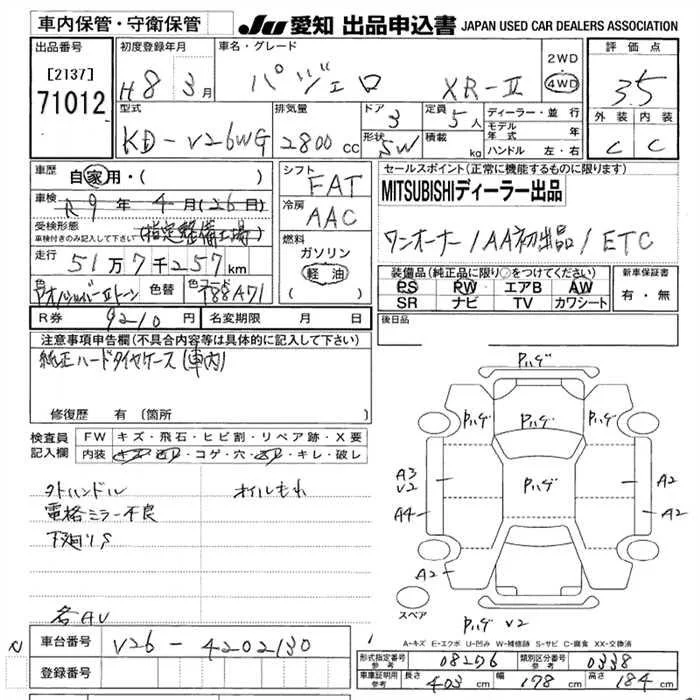 車内保管・守衛保管
JU 愛知 出品申込書 JAPAN USED CAR DEALERS ASSOCIATION
出品番号
[2137]
71012
初度登録年月
H8年 3月
車名・グレード
パジェロ XR-Ⅱ
2WD
4WD
評価点
3.5
外装 内装
C C
型式
KD-V26WG
排気量
2800cc
ドア
3
形状
SW
定員
5人
積載
kg
ディーラー・並行
モデル年式 年
ハンドル 左・右
車歴
自家用・( )
車検
R9年 4月(26日)
受検形態
車検付きのみ記入して下さい
(指定整備工場)
走行
51万7千257km
色
色替
R券
9210円
名変期限 月 日
シフト
FAT
冷房
AAC
燃料
ガソリン
軽油
( )
セールスポイント(正常に機能するものに限ります)
MITSUBISHIディーラー出品
ワンオーナー/AA初出品/ETC
装備品(純正品に限り○をつけてください)
PS PW エアB AW
SR ナビ TV カワシート
新車保証書
有・無
後日品
注意事項申告欄(不具合内容等は具体的に記入して下さい)
純正ハードタイヤケース(車内)
修復歴 有(箇所 )
検査員
記入欄
FW キズ・飛石・ヒビ割・リペア跡・X要
内装 キズ・汚レ・コゲ・穴・凹レ・キレ・破レ
外ハンドル オイルもれ
電格ミラー不良
下廻りS
各AU
Pハゲ
Pハゲ Pハゲ
A3
V2
A4
Pハゲ
A2
A2
A2
スペア
Pハゲ V2
A-キズ E-エクボ U-凹み W-補修跡 S-サビ C-腐食 XX-交換済
車台番号
V26-4202130
登録番号
形式指定番号
参考
08256
類別区分番号
参考
0338
車庫証明用
参考
長さ 403cm
幅 178cm
高さ 184cm